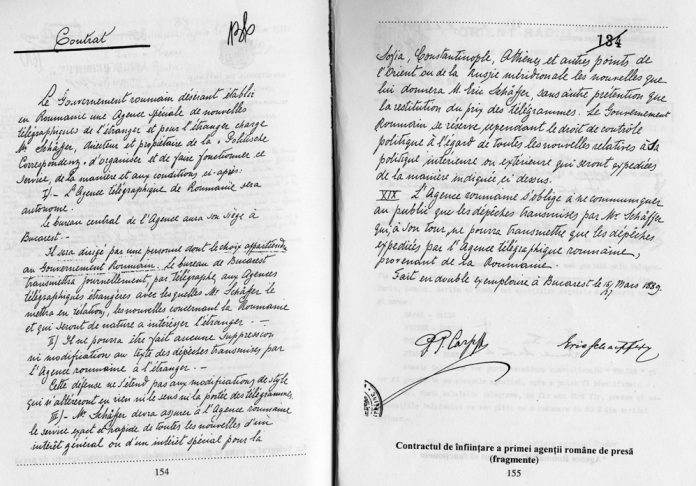 Contrat
Le Gouvernement roumain désirant établir
en Roumanie une Agence spéciale de nouvelles
télégraphiques de l'étranger et pour l'étranger charge
Mr Schäffer, directeur et propriétaire de la "Politische
Correspondenz" d'organiser et de faire fonctionner ce
service, de la manière et aux conditions ci-après:
I)- L'Agence télégraphique de Roumanie sera
autonome.
Le bureau central de l'Agence aura son siège à
Bucarest.-
Il sera dirigé par une personne dont le choix appartiendra
au Gouvernement Roumain. Le bureau de Bucarest
transmettra journellement, par télégraphe, aux Agences
télégraphiques étrangères avec lesquelles Mr Schäfer le
mettra en relation, les nouvelles concernant la Roumanie
et qui seront de nature à intéresser l'étranger.-
II) Il ne pourra être fait aucune suppression
ni modification au texte des dépêches transmises par
l'Agence roumaine à l'étranger.-
Cette défense ne s'étend pas aux modifications de style
qui n'altéreront en rien ni le sens ni la portée des télégrammes.
III)- Mr Schäffer devra assurer à l'Agence roumaine
le service exact et rapide de toutes les nouvelles d'un
intérêt général ou d'un intérêt spécial pour la
154
184
Sofia, Constantinople, Athènes et autres points de
l'Orient ou de la Russie méridionale les nouvelles que
lui donnera M. Eric Schäffer sans autre prétention que
la restitution du prix des télégrammes. Le Gouvernement
Roumain se réserve cependant le droit de contrôle
politique à l'égard de toutes les nouvelles relatives à la
politique intérieure ou extérieure qui seront expédiées
de la manière indiquée ci dessus.
XIX L'Agence roumaine s'oblige à ne communiquer
au public que les dépêches transmises par Mr Schäffer
qui, à son tour, ne pourra transmettre que les dépêches
expédiées par l'Agence télégraphique roumaine,
provenant de la Roumanie.
Fait en double exemplaire à Bucarest le 15/27 Mars 1889.
P P Carp
Eric Schaeffer
Contractul de înființare a primei agenții române de presă
(fragmente)
155